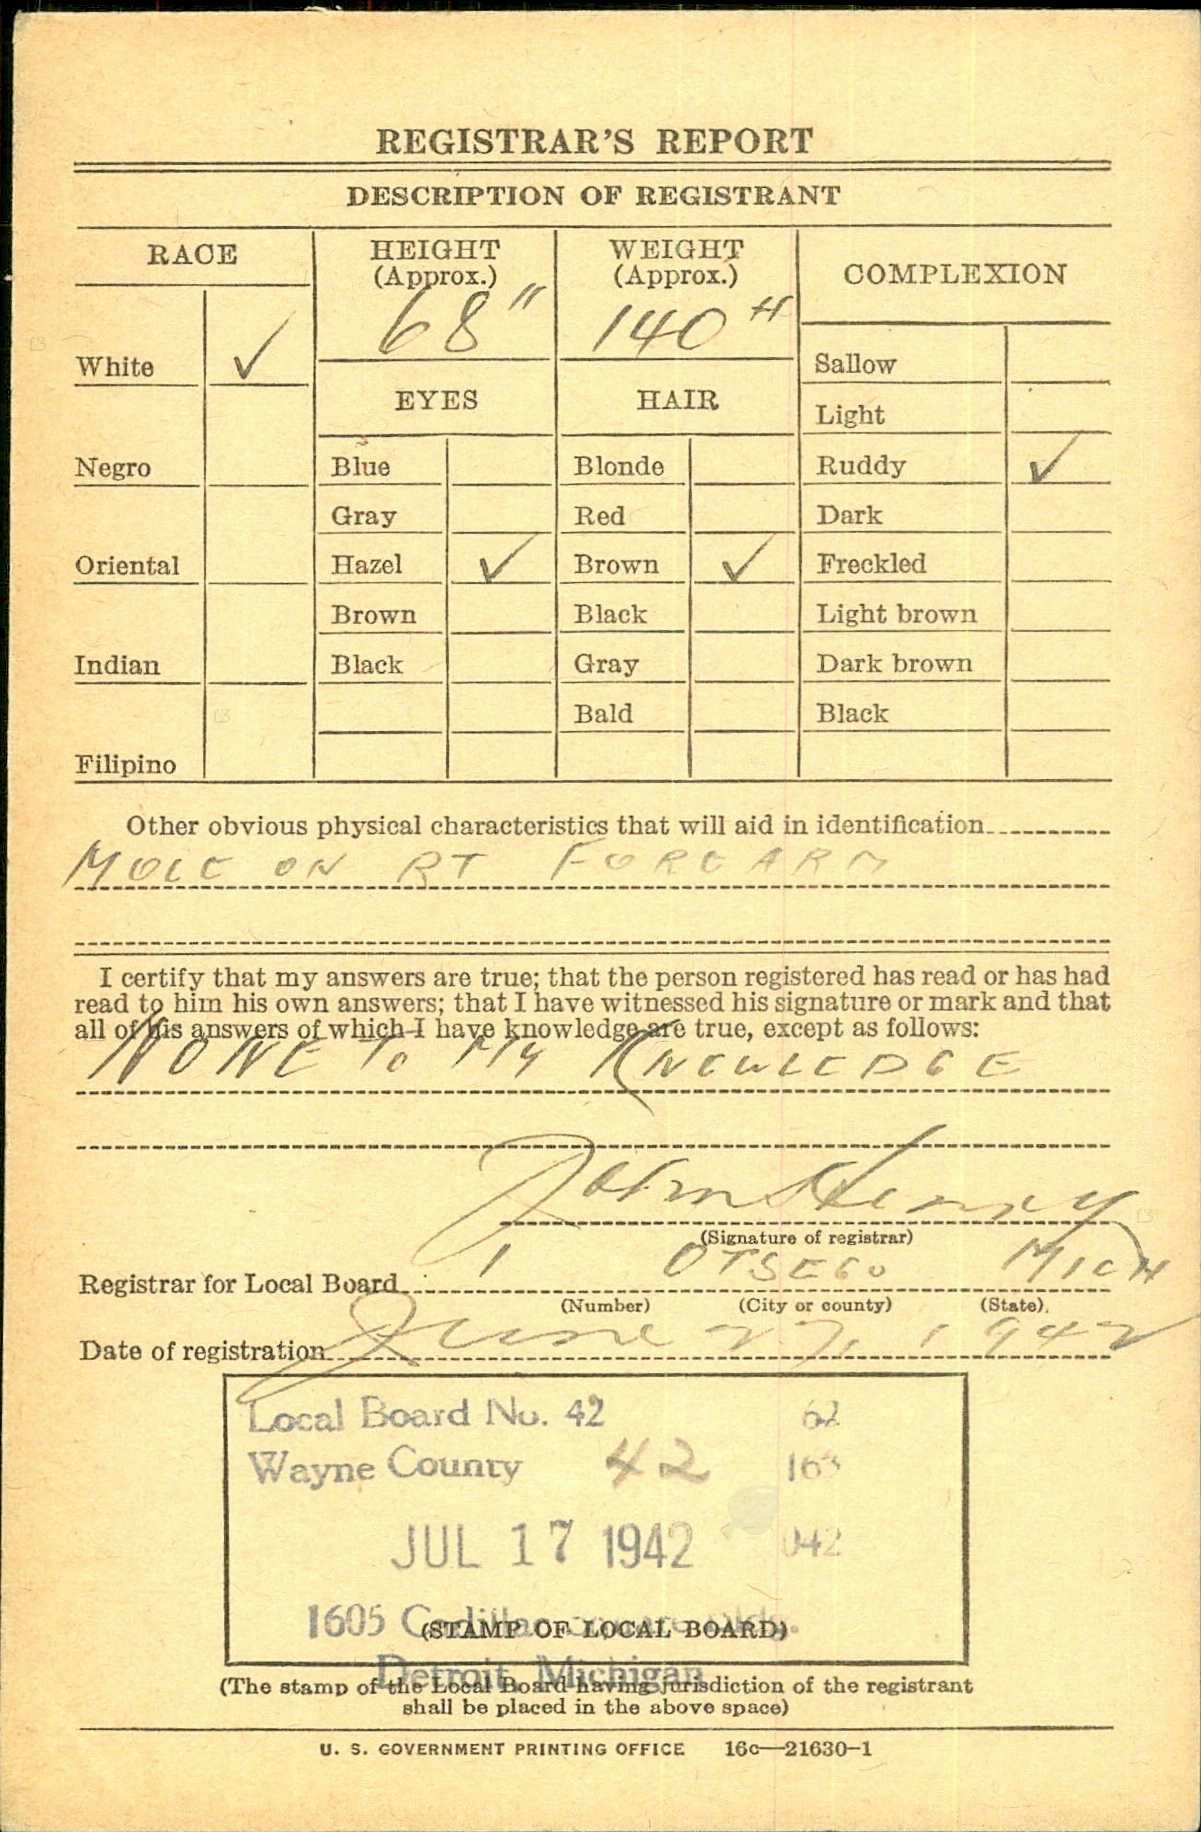 REGISTRAR'S REPORT
DESCRIPTION OF REGISTRANT
RACE
HEIGHT
(Approx.)
68"
WEIGHT
(Approx.)
140 #
COMPLEXION
White ✓
Negro
Oriental
Indian
Filipino
EYES
Blue
Gray
Hazel ✓
Brown
Black
HAIR
Blonde
Red
Brown ✓
Black
Gray
Bald
Sallow
Light
Ruddy ✓
Dark
Freckled
Light brown
Dark brown
Black
Other obvious physical characteristics that will aid in identification
MOLE ON RT FOREARM
I certify that my answers are true; that the person registered has read or has had
read to him his own answers; that I have witnessed his signature or mark and that
all of his answers of which I have knowledge are true, except as follows:
NONE TO MY KNOWLEDGE
John Henry
(Signature of registrar)
Registrar for Local Board 1 OTSEGO MICH
(Number) (City or county) (State)
Date of registration June 27, 1942
Local Board No. 42 62
Wayne County 42 163
JUL 17 1942 042
1605 Cadillac
(STAMP OF LOCAL BOARD)
Detroit, Michigan
(The stamp of the Local Board having jurisdiction of the registrant
shall be placed in the above space)
U. S. GOVERNMENT PRINTING OFFICE 16c—21630-1